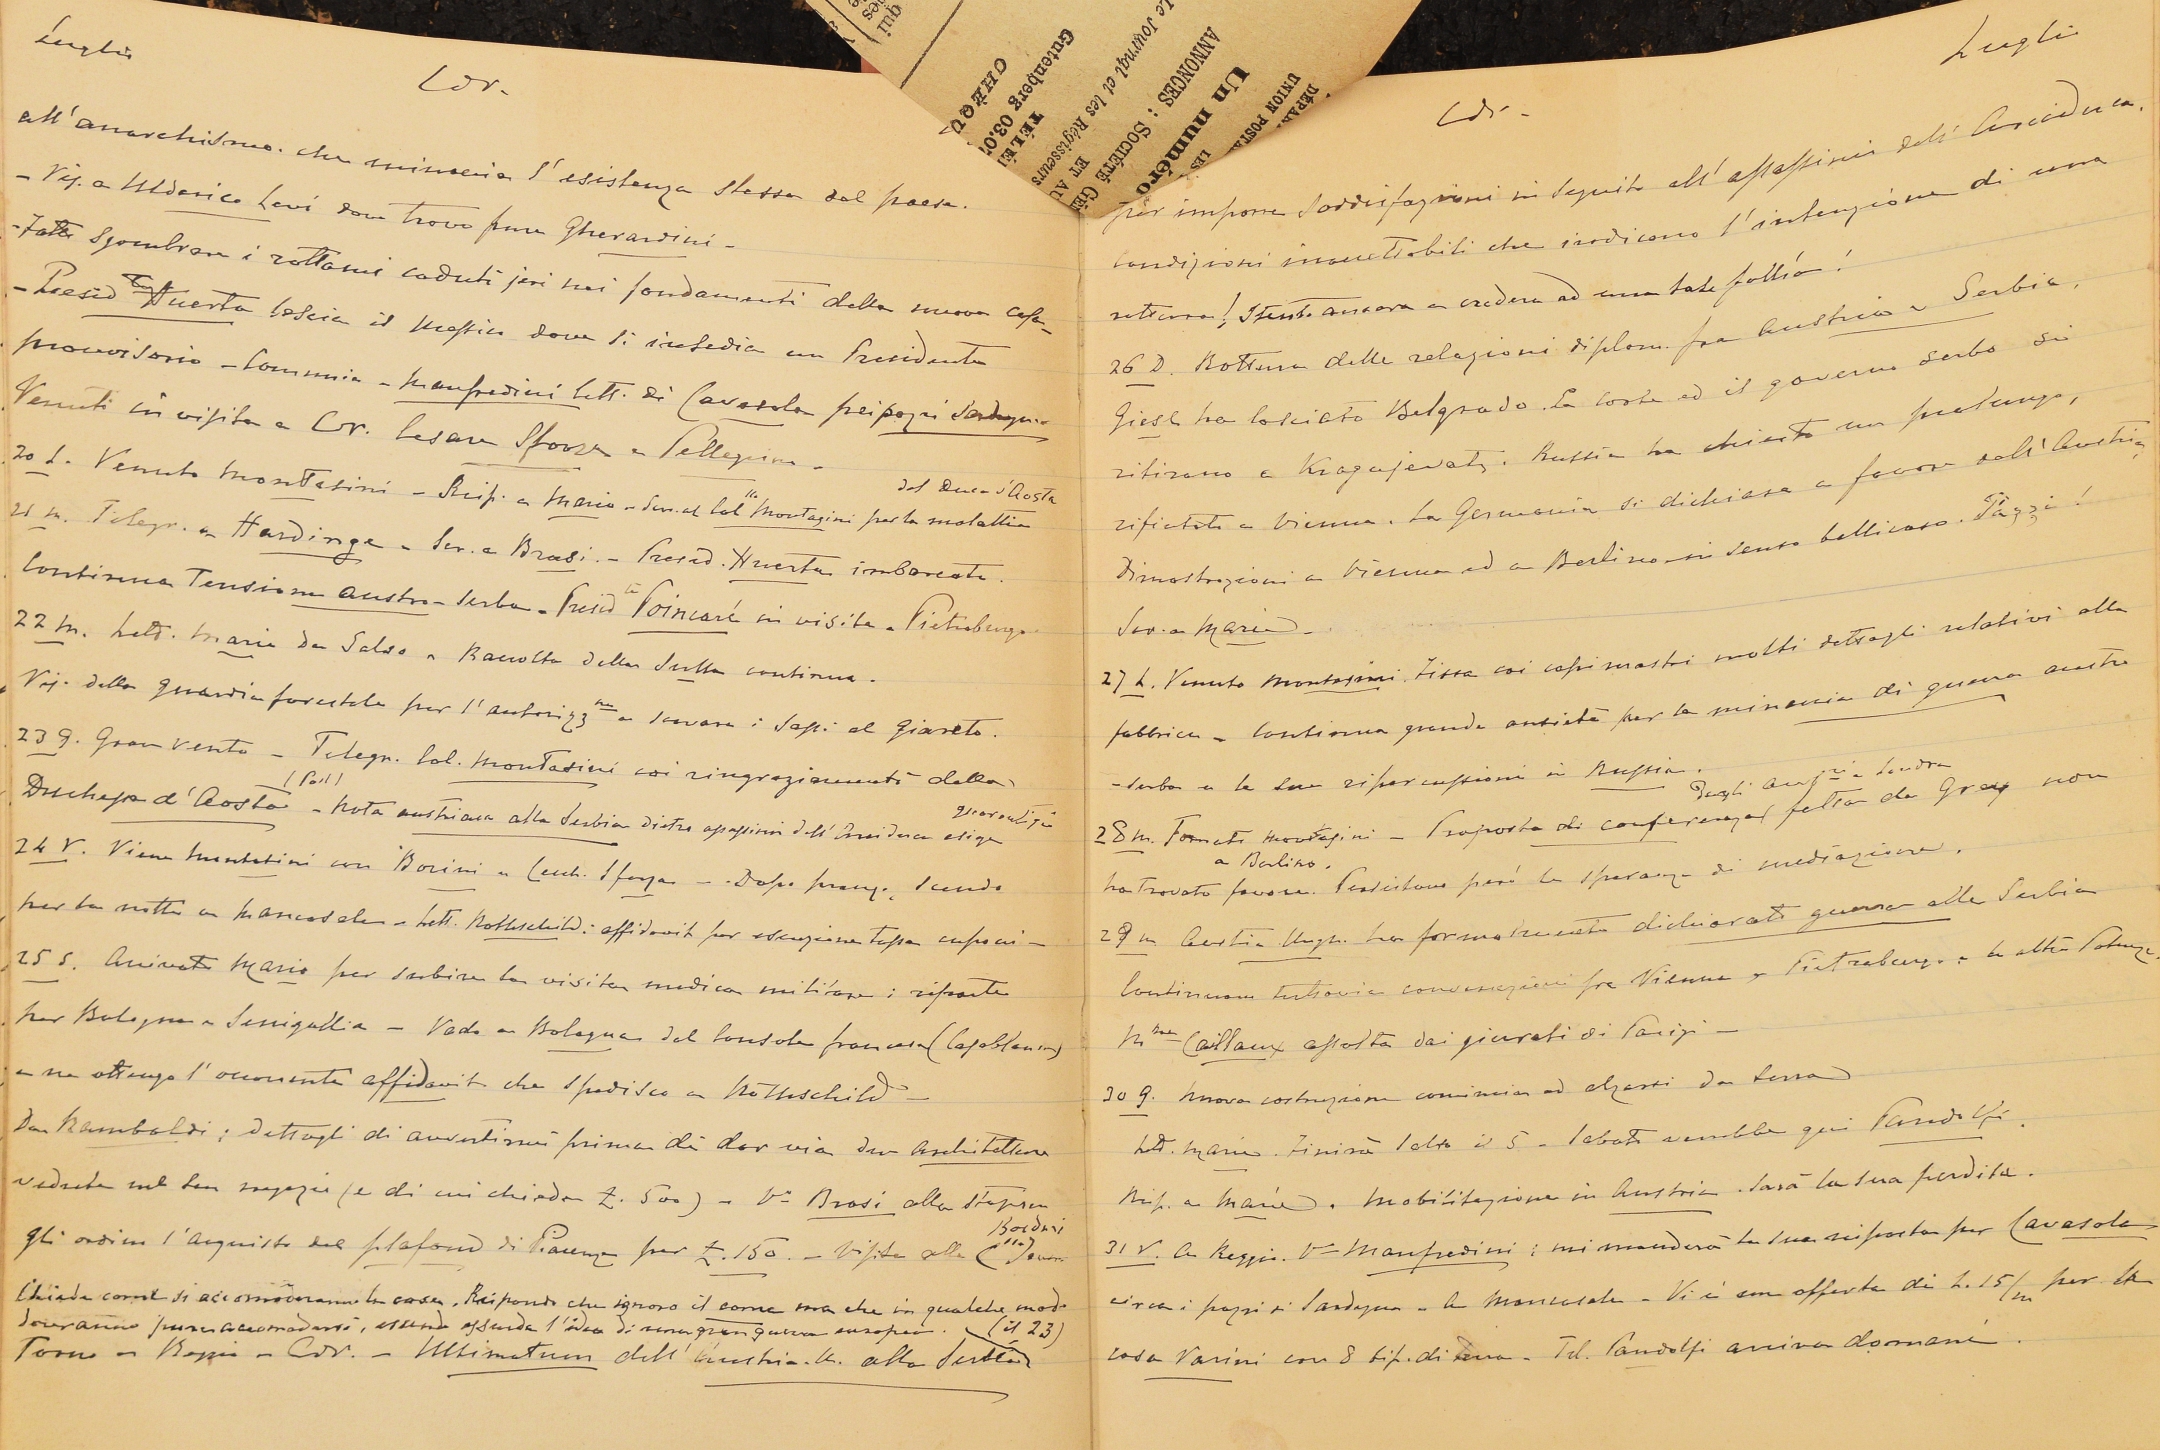 Luglio
Cor.
all'anarchismo che minaccia l'esistenza stessa del paese.
- Vis. a Ulderico Levi dove trovo pure Gherardini -
- Fatti sgombrare i rottami caduti jeri nei fondamenti della nuova casa -
- Presid.te Huerta lascia il Messico dove si insedia un Presidente
provvisorio - - Manfredini lett. di Cavasola pei pozzi Sardegna
Venuti in visita a Cor. Cesare Sforza e Pellegrino -
20 L. Venuto Montasini - Risp. a Mario - Scr. al Col.llo Montasini per la malattia
del Duca d'Aosta
21 M. Telegr. a Hardinge - Scr. a Brasi. - Presid. Huerta imbarcato.
Continua Tensione austro-serba - Presid.te Poincaré in visita a Pietroburgo.
22 M. Lett. Marie da Salso - Raccolta della Sulla continua.
Vis. della guardia forestale per l'autorizz.ne a scavare i sassi al Giareto.
23 G. Gran vento - Telegr. Col. Montasini coi ringraziamenti della
Duchessa d'Aosta - Nota austriaca alla Serbia dietro assassinio dell'Arciduca esige
guarentigie
24 V. Viene Montasini con Borini e Sforza - Dopo pranzo scendo
per la notte a Mancasale - Lett. Rothschild: affidavit per esenzione tassa cuponi -
25 S. Arrivato Mario per subire la visita medica militare: riparte
per Bologna e Senigallia - Vado a Bologna dal Console francese (Casablanca)
e ne ottengo l'occorrente affidavit che spedisco a Rothschild -
Da Rambaldi; dettagli di avvertirmi prima di dar via due Architetture
vedute nel suo negozio (e di cui chiede £. 500) - Vo Brasi alla Staz.
gli ordino l'acquisto del plafond di Piacenza per £. 150. - Visita alla C.ssa
Borduri
Chiede come si accomoderanno le cose. Rispondo che ignoro il come ma che in qualche modo
dovranno pure accomodarsi, essendo assurda l'idea di una gran guerra europea. (il 23)
Torno a Reggio - Cor. - Ultimatum dell'Austria-U. alla Serbia
qui
CHÈQU
Gutenberg 03.0
TÉLÉ
Le Journal et les Régisseurs
ANNONCES : SOCIÉTÉ GÉ
ET AU
Un numéro
UNION POSTA
DÉPAR
LES
Luglio
Cor.
per imporre soddisfazioni in seguito all'assassinio dell'Arciduca.
Condizioni inaccettabili che indicano l'intenzione di una
rottura! Stento ancora a credere ad una tale follia!
26 D. Rottura delle relazioni diplom. fra Austria e Serbia.
Giesl ha lasciato Belgrado. La Corte ed il governo serbo si
ritirano a Kragujevatz. Russia ha chiesto un prolungo,
rifiutato a Vienna. La Germania si dichiara a favore dell'Austria
Dimostrazioni a Vienna ed a Berlino in senso bellicoso. Pazzi!
Scr. a Marie -
27 L. Venuto Montasini. Fissa coi capimastri molti dettagli relativi alla
fabbrica - Continua grande ansietà per la minaccia di guerra austro
-serba e le sue ripercussioni in Russia.
28 M. Tornato Montasini - Proposta di conferenza fatta da Grey non
degli Amb.ri a Londra
a Berlino.
ha trovato favore. Persistono però le speranze di mediazione.
29 M Austria Ungh. ha formalmente dichiarato guerra alla Serbia
Continuano tuttavia conversazioni fra Vienna e Pietroburgo e le altre Potenze.
Mme Caillaux assolta dai giurati di Parigi -
30 G. Nuova costruzione comincia ad alzarsi da terra
Lett. Marie. Finirà Salso il 5 - Sabato verrebbe qui Pandolfi.
Risp. a Marie. Mobilitazione in Austria. Sarà la sua perdita.
31 V. A Reggio. Vo Manfredini: mi manderà la sua risposta per Cavasola
circa i pozzi di Sardegna - A Mancasale - Vi è una offerta di L. 15/m per la
casa Varini con 8 bif. di terra - Tel. Pandolfi arriva domani.